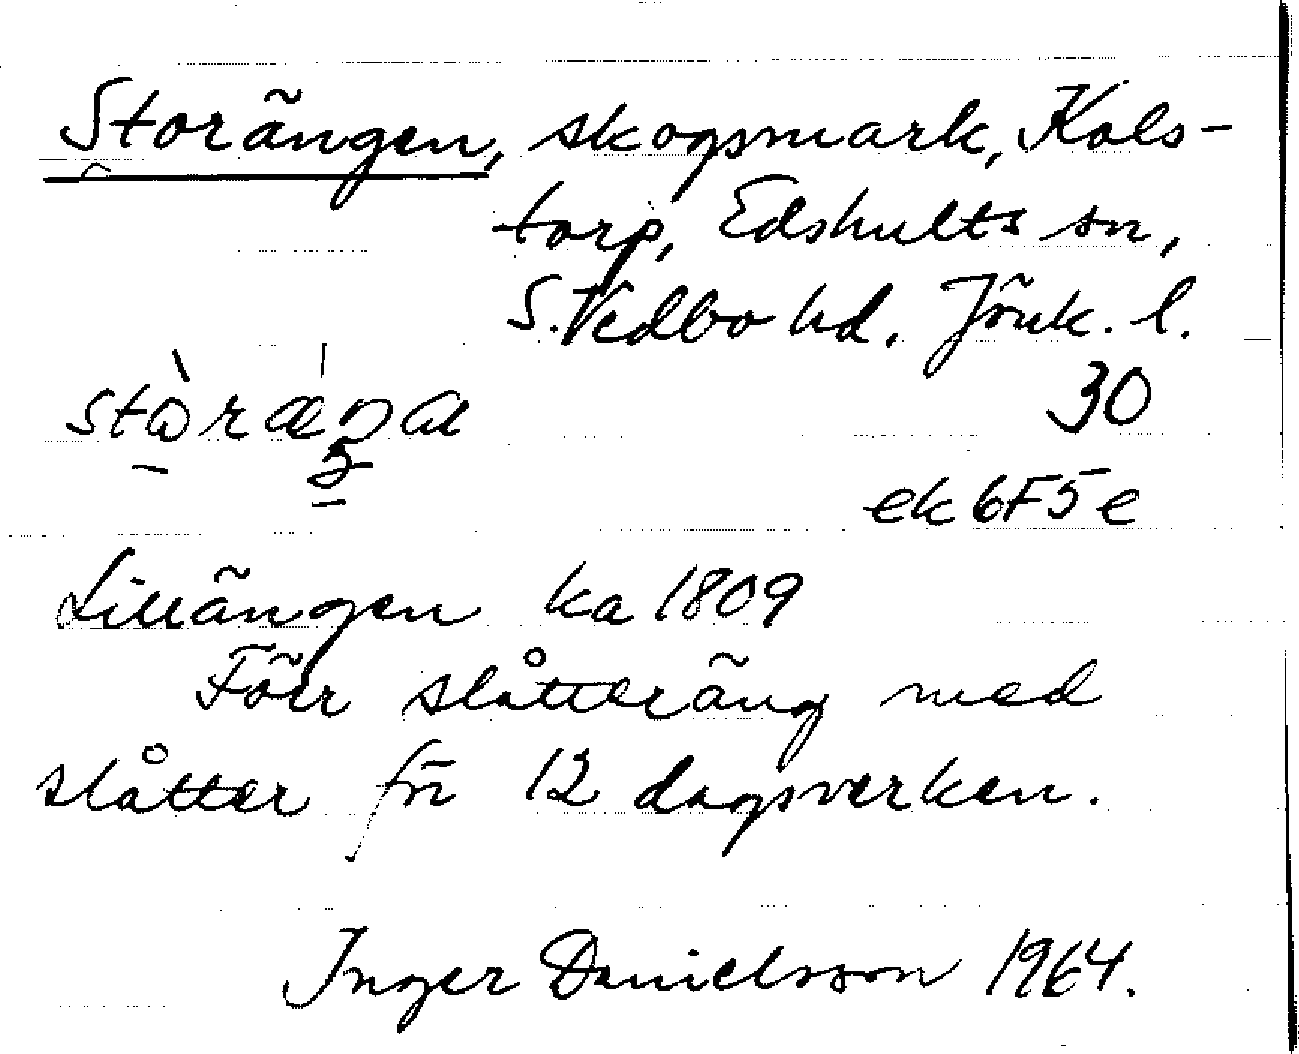 Storängen, skogsmark, Kols-
torp, Edshults sn,
S. Vedbo hd. Jönk. l.
30
ek 6F5e
Lillängen ka 1809
Förr slåtteräng med
slåtter för 12 dagsverken.
Inger Danielsson 1964.